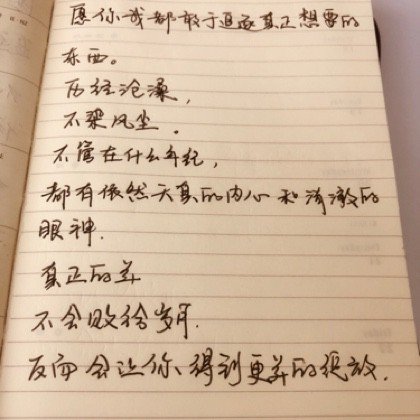 愿你我都敢于追逐真正想要的
东西。
历经沧桑,
不染风尘。
不管在什么年纪,
都有依然天真的内心和清澈的
眼神.
真正的美
不会败给岁月.
反而会让你得到更美的绽放.